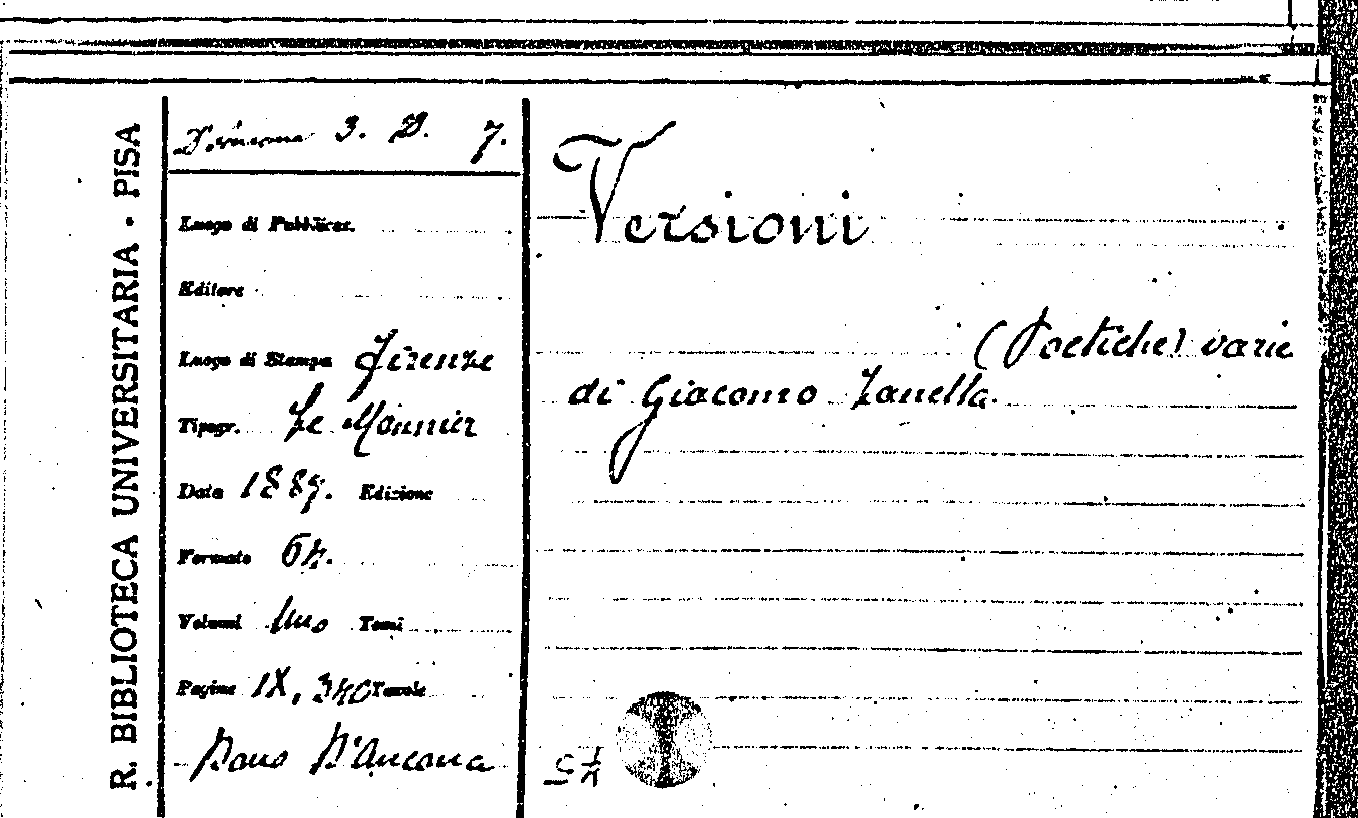 R. BIBLIOTECA UNIVERSITARIA - PISA
D'Ancona 3. D. 7.
Luogo di Pubblicaz.
Editore
Luogo di Stampa Firenze
Tipogr. Le Monnier
Data 1887. Edizione
Formato 64.
Volumi Uno Tomi
Pagine IX, 340 Tavole
Dono D'Ancona
Versioni
(Poetiche) varie
di Giacomo Zanella.